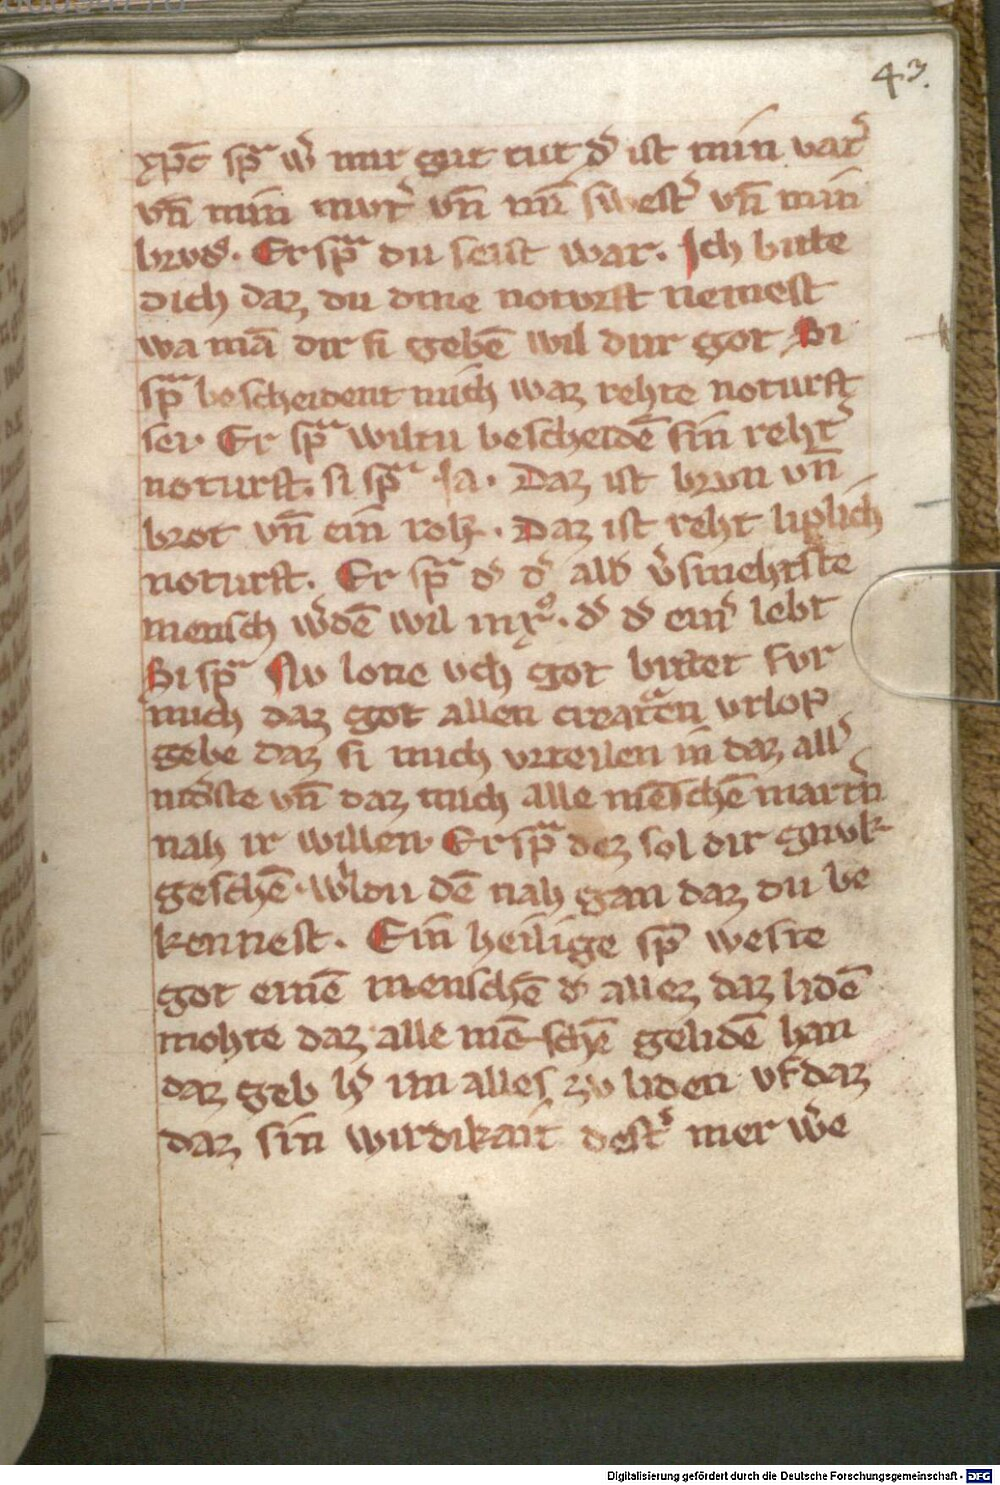 43.
xp̄c spͣ w̾ mir gŭt tut d̾ ist min vat̾
vn̄ min mvt̾ vn̄ mī swest̾ vn̄ min
brvd̾. Er spͣ du seist war. Ich bitte
dich daz du dine noturft nemest
wa mā dir si gebē wil dur got Si
spͣ bescheident mich waz rehte noturft
sei. Er spͣ wiltu bescheidē sin reht̾
noturft. si spͣ Ja. Daz ist brvn vn̄
brot vn̄ ein rok. Daz ist reht liplich
noturft. Er spͣ d̾ d̾ all̾ v̾smehtste
mensch w̾dē wil in xͦ. d̾ d̾ ein̾ lebt
Si spͣ Nv lone vch got bittet fvr
mich daz got allen creatͣen vrlop
gebe daz si mich vrteilen in daz all̾
nid̾ste vn̄ daz mich alle mēschē mart̾n
nah ir willen. Er spͣ dez sol dir gnvk
geschē. w̾ldu dē nah gan daz du be
kennest. Ein heilige sp̄ weste
got einē menschē d̾ allez daz lidē
mohte daz alle mē-schē gelidē han
daz geb h̾ im alles zv liden vf daz
daz sin wirdikait dest̾ mer w̾e
Digitalisierung gefördert durch die Deutsche Forschungsgemeinschaft - DFG